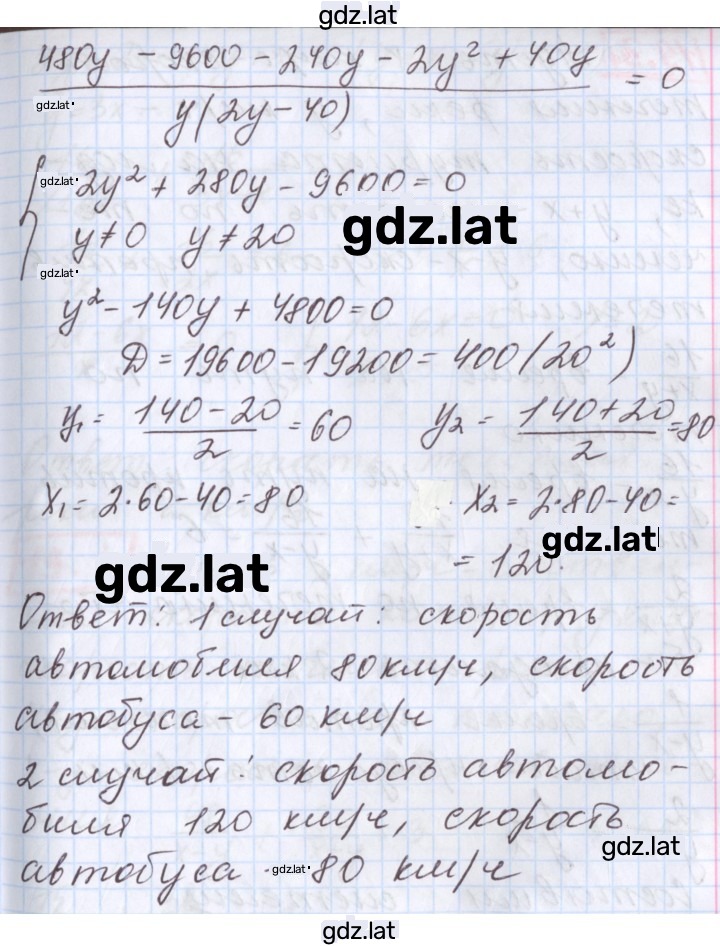 gdz.lat
480y - 9600 - 240y - 2y² + 40y
gdz.lat
y(2y - 40) = 0
gdz.lat
2y² + 280y - 9600 = 0
y ≠ 0 y ≠ 20
gdz.lat
gdz.lat
y² - 140y + 4800 = 0
D = 19600 - 19200 = 400 (20²)
y₁ = (140 - 20)/2 = 60 y₂ = (140 + 20)/2 = 80
x₁ = 2·60 - 40 = 80 x₂ = 2·80 - 40 =
gdz.lat
= 120.
gdz.lat
Ответ: 1 случай: скорость
автомобиля 80 км/ч, скорость
автобуса - 60 км/ч
2 случай: скорость автомо-
биля 120 км/ч, скорость
gdz.lat
автобуса - 80 км/ч
gdz.lat
gdz.lat